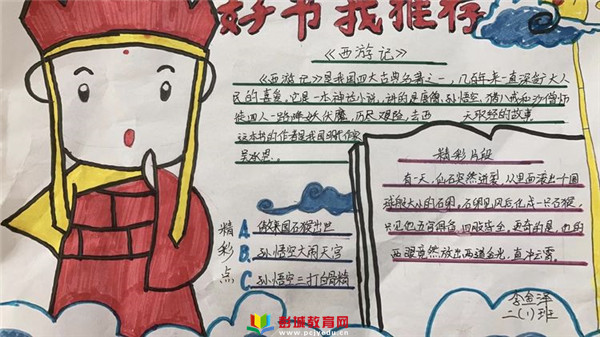 好书我推荐
《西游记》
《西游记》是我国四大古典名著之一，几百年来一直深受广大人
民的喜爱，它是一本神话小说，讲的是唐僧、孙悟空、猪八戒和沙僧师
徒四人一路降妖伏魔，历尽艰险，去西天取经的故事
这本书的作者是我国明代作家
吴承恩。
精彩片段
有一天，仙石突然迸裂，从里面滚出一个圆
球般大小的石卵，石卵见风后化成一只石猴，
只见他五官俱备，四肢齐全，更奇的是，他的
两眼竟然放出两道金光，直冲云霄。
精彩点
A. 傲来国石猴出世
B. 孙悟空大闹天宫
C. 孙悟空三打白骨精
二(1)班
彭城教育网
www.pcjyedu.cn